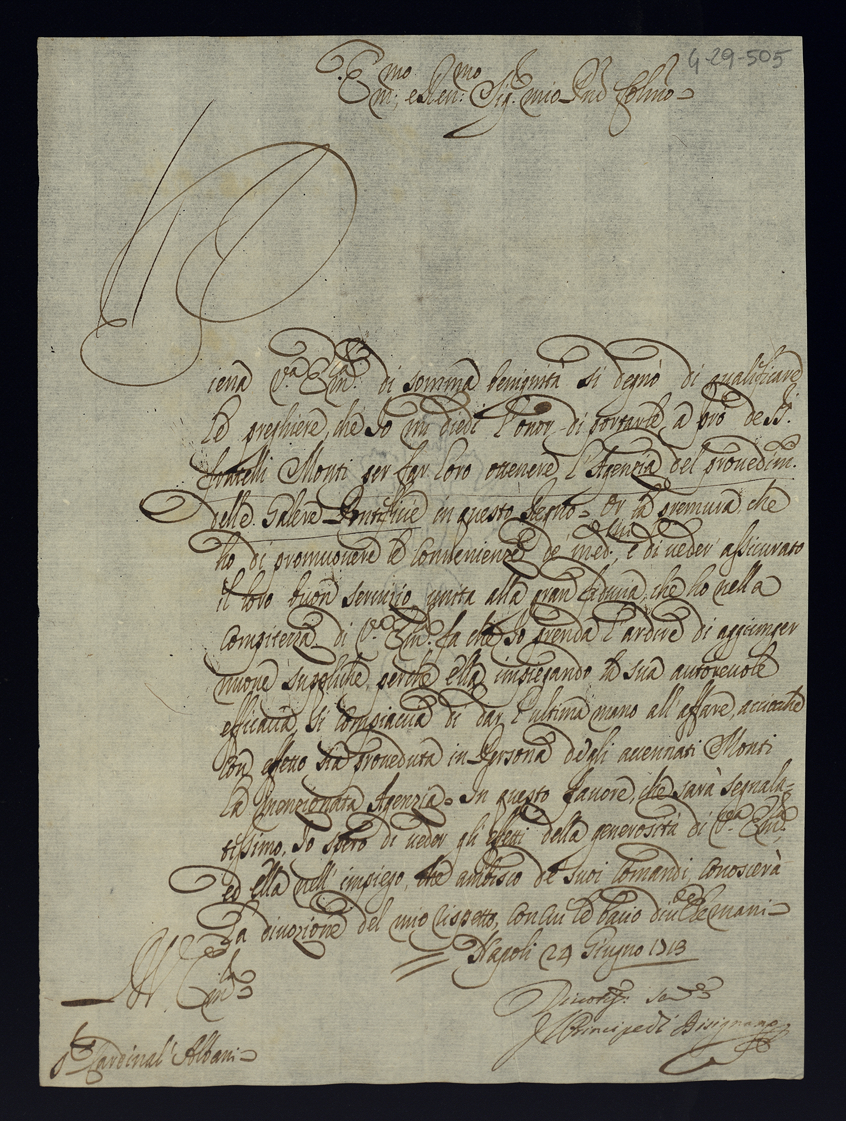 G-29-505
Em.mo e Rev.mo Sig.r mio P.rone Colmo
Piena V.ra Em.za di somma benignità si degnò di qualificare
le preghiere, che io mi diedi l'onor di portarle, a prò de SS.
fratelli Monti per far loro ottenere l'Agenzia del provedim.
delle Galere Pontificie in questo Regno = Or la premura che
ho di promuovere le convenienze de' med.mi, e di veder assicurato
il loro buon servizio, unita alla gran fiducia, che ho nella
compitezza di V.ra Em.za fa che io prenda l'ardire di aggiunger
nuove suppliche perche ella impiegando la sua autorevole
efficacia, si compiaccia di dar l'ultima mano all'affare, accioche
con effetto sia proveduta in Persona degli accennati Monti
la menzionata Agenzia = In questo favore, che sarà segnala-
tissimo, Io spero di veder gli effetti della generosità di V.ra Em.za
ed ella nell'impiego, che ambisco de suoi comandi, conoscerà
la divozione del mio rispetto, con cui le bacio le mani =
Napoli 24 Giugno 1713
Em.za
Il Principe di Bisignano
Cardinal' Albani =